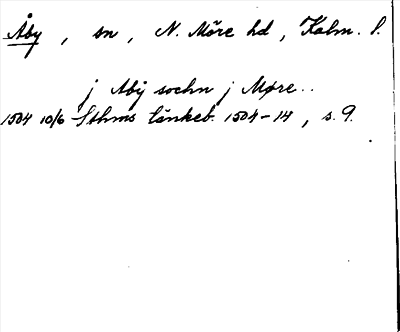 Åby, sn, N. Möre hd, Kalm. l.
j Abij sochn j Møre..
1504 10/6 Sthms tänkeb. 1504-14, s. 9.